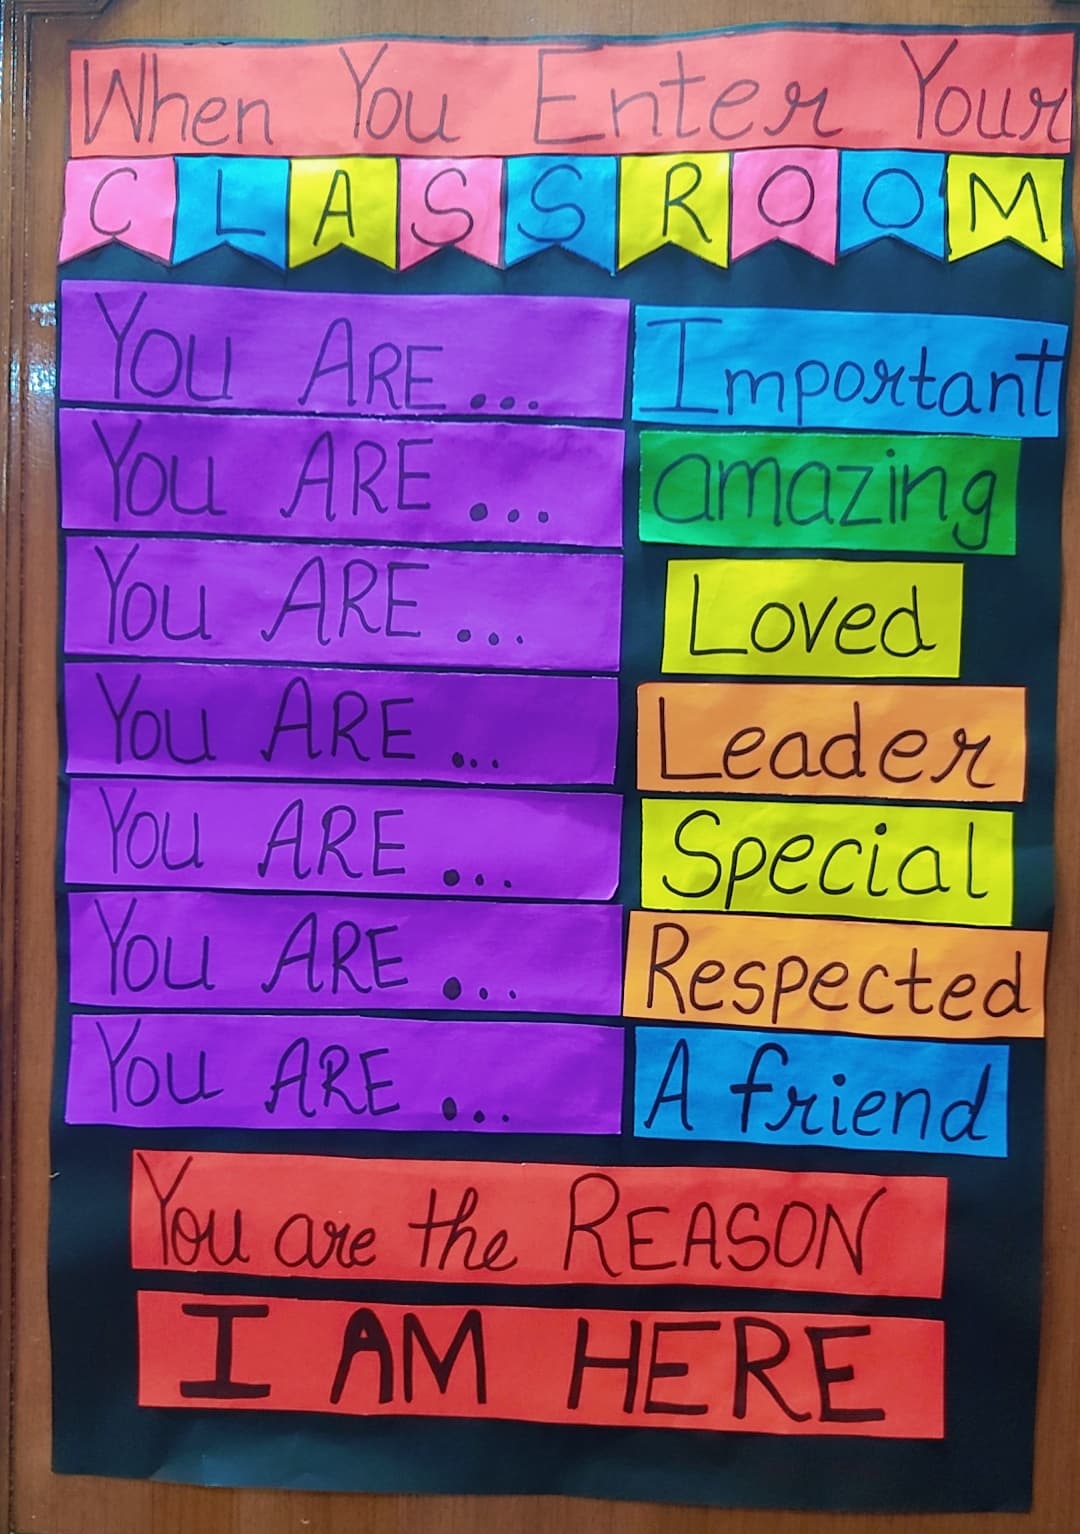 When You Enter Your
CLASSROOM
YOU ARE... Important
YOU ARE... amazing
YOU ARE... Loved
YOU ARE... Leader
YOU ARE... Special
YOU ARE... Respected
YOU ARE... A friend
You are the REASON
I AM HERE